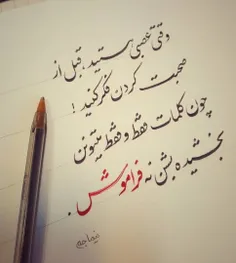 وقتی عصبی هستید، قبل از
صحبت کردن فکر کنید!
چون کلمات فقط و فقط میتونن
بخشیده بشن نه فراموش.